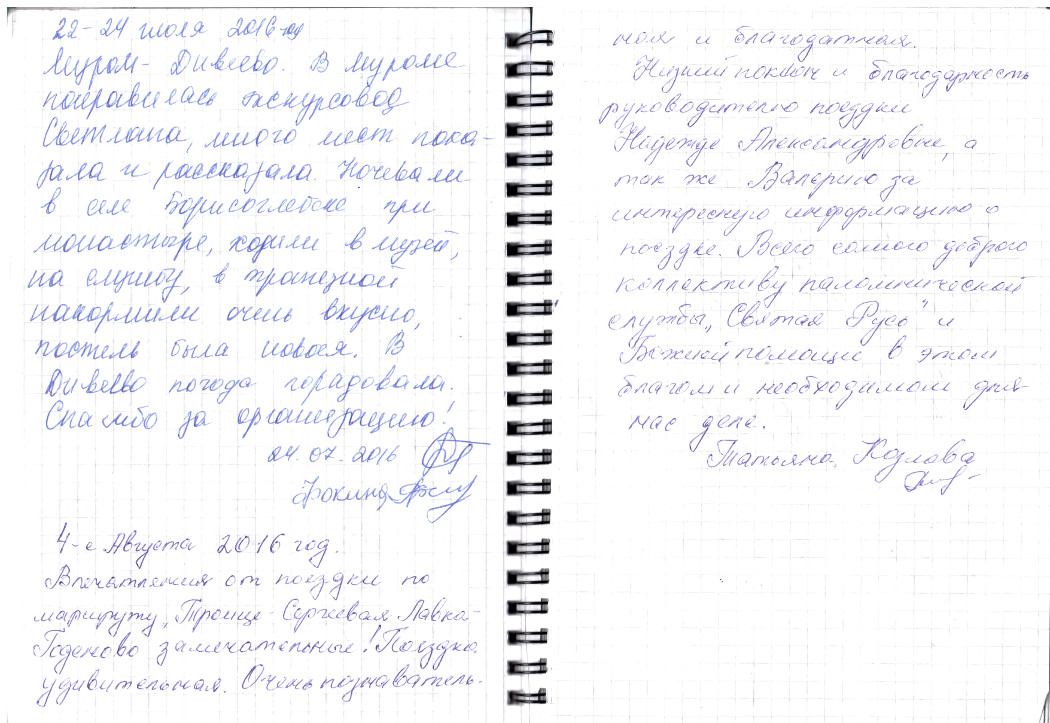 22-24 июля 2016 год
Муром - Дивеево. В Муроме
понравилась экскурсовод
Светлана, много мест пока-
зала и рассказала. Ночевали
в селе Борисоглебске при
монастыре, ходили в музей,
на службу, в трапезной
накормили очень вкусно,
постель была новая. В
Дивеево погода порадовала.
Спасибо за организацию!
24.07.2016
Фокина
4-е Августа 2016 год.
Впечатления от поездки по
маршруту "Троице-Сергиевая Лавка-
Годеново замечательные! Поездка
удивительная. Очень познаватель-
ная и благодатная.
Низкий поклон и благодарность
руководителю поездки
Надежде Александровне, а
так же Валерию за
интересную информацию о
поездке. Всего самого доброго
коллективу паломнической
службы "Святая Русь" и
Божией помощи в этом
благом и необходимом для
нас деле.
Татьяна Козлова